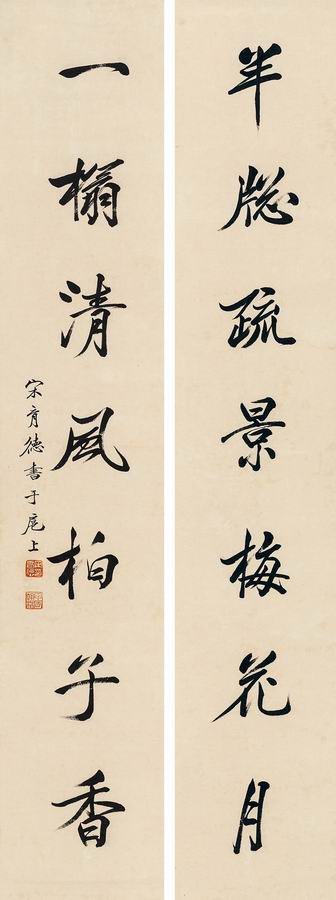 半牕疏景梅花月
一榻清風柏子香
宋育德書于扈上